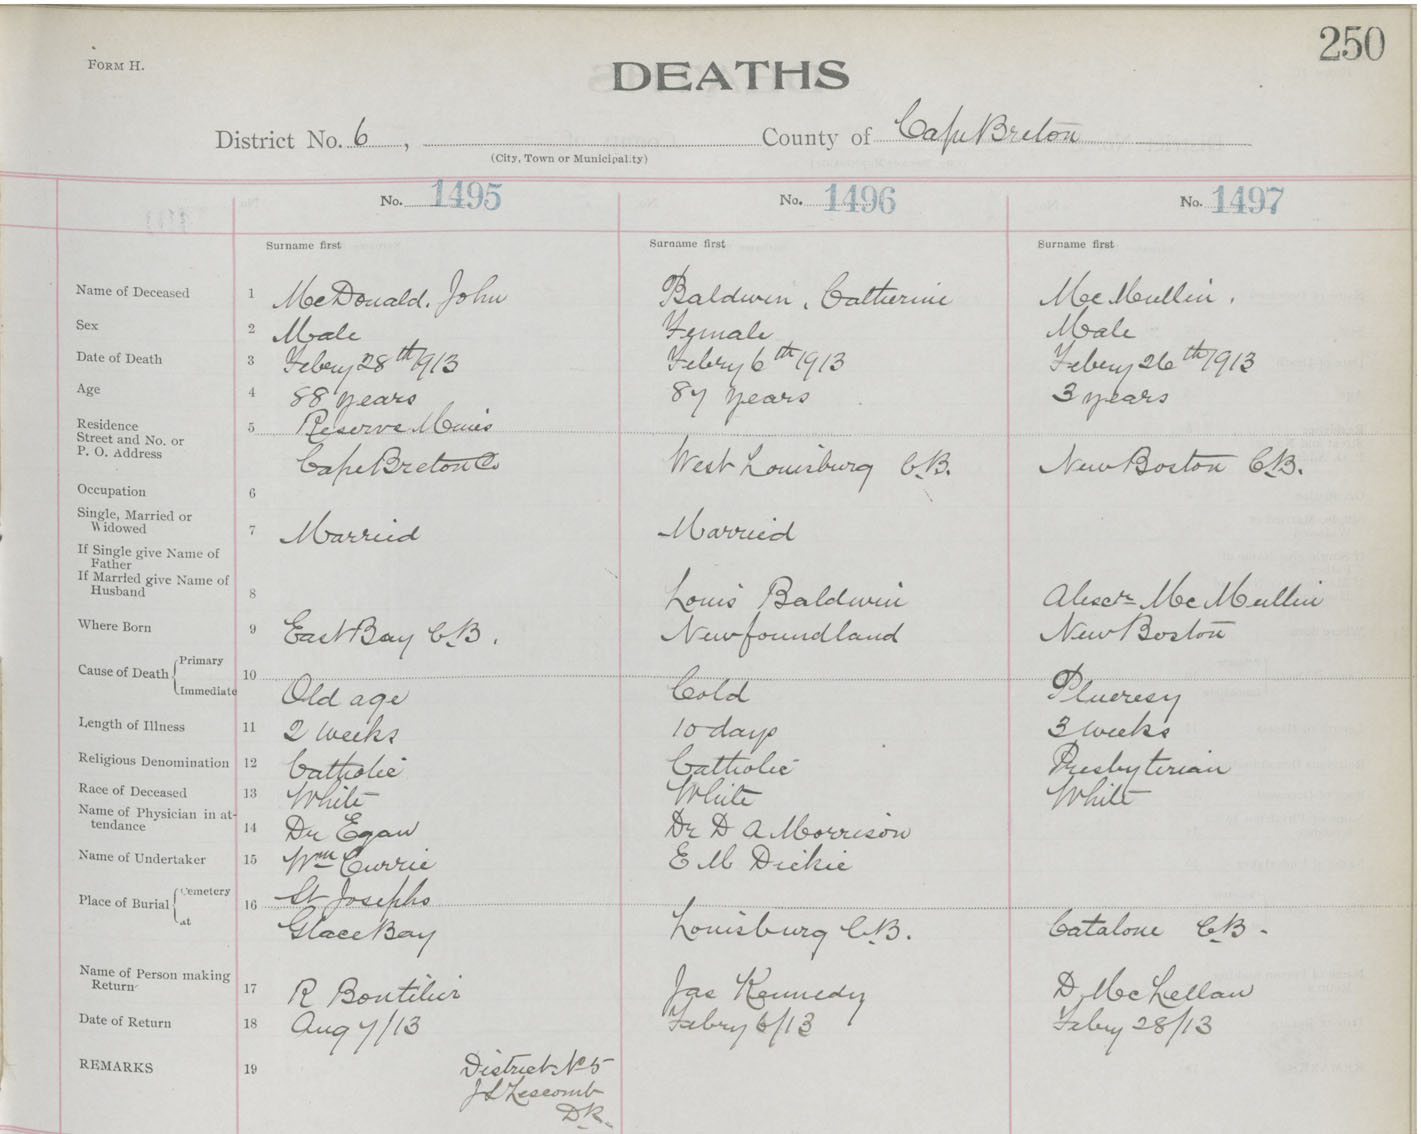 250
FORM H.
DEATHS
District No. 6, County of Cape Breton
(City, Town or Municipality)
No. 1495 No. 1496 No. 1497
Surname first Surname first Surname first
Name of Deceased 1 McDonald. John Baldwin, Catherine McMullin.
Sex 2 Male Female Male
Date of Death 3 Febery 28th 1913 Febry 6th 1913 Febery 26th 1913
Age 4 88 years 87 years 3 years
Residence 5 Reserve Mines
Street and No. or
P. O. Address Cape Breton Co West Louisburg C.B. New Boston C.B.
Occupation 6
Single, Married or
Widowed 7 Married Married
If Single give Name of
Father
If Married give Name of
Husband 8 Louis Baldwin Alescr McMullin
Where Born 9 East Bay C.B. Newfoundland New Boston
Cause of Death Primary 10
Immediate Old age Cold Plueresy
Length of Illness 11 2 weeks 10 days 3 weeks
Religious Denomination 12 Catholic Catholic Presbyterian
Race of Deceased 13 White White White
Name of Physician in at-
tendance 14 Dr Egan Dr D A Morrison
Name of Undertaker 15 Wm Currie E M Dickie
Place of Burial Cemetery 16 St Josephs
at Glace Bay Louisburg C.B. Catalone C.B.
Name of Person making
Return 17 R Bontilier Jas Kennedy D McLellan
Date of Return 18 Aug 7/13 Febry 6/13 Febry 28/13
REMARKS 19 District No 5
J S Lescomb
D.R.